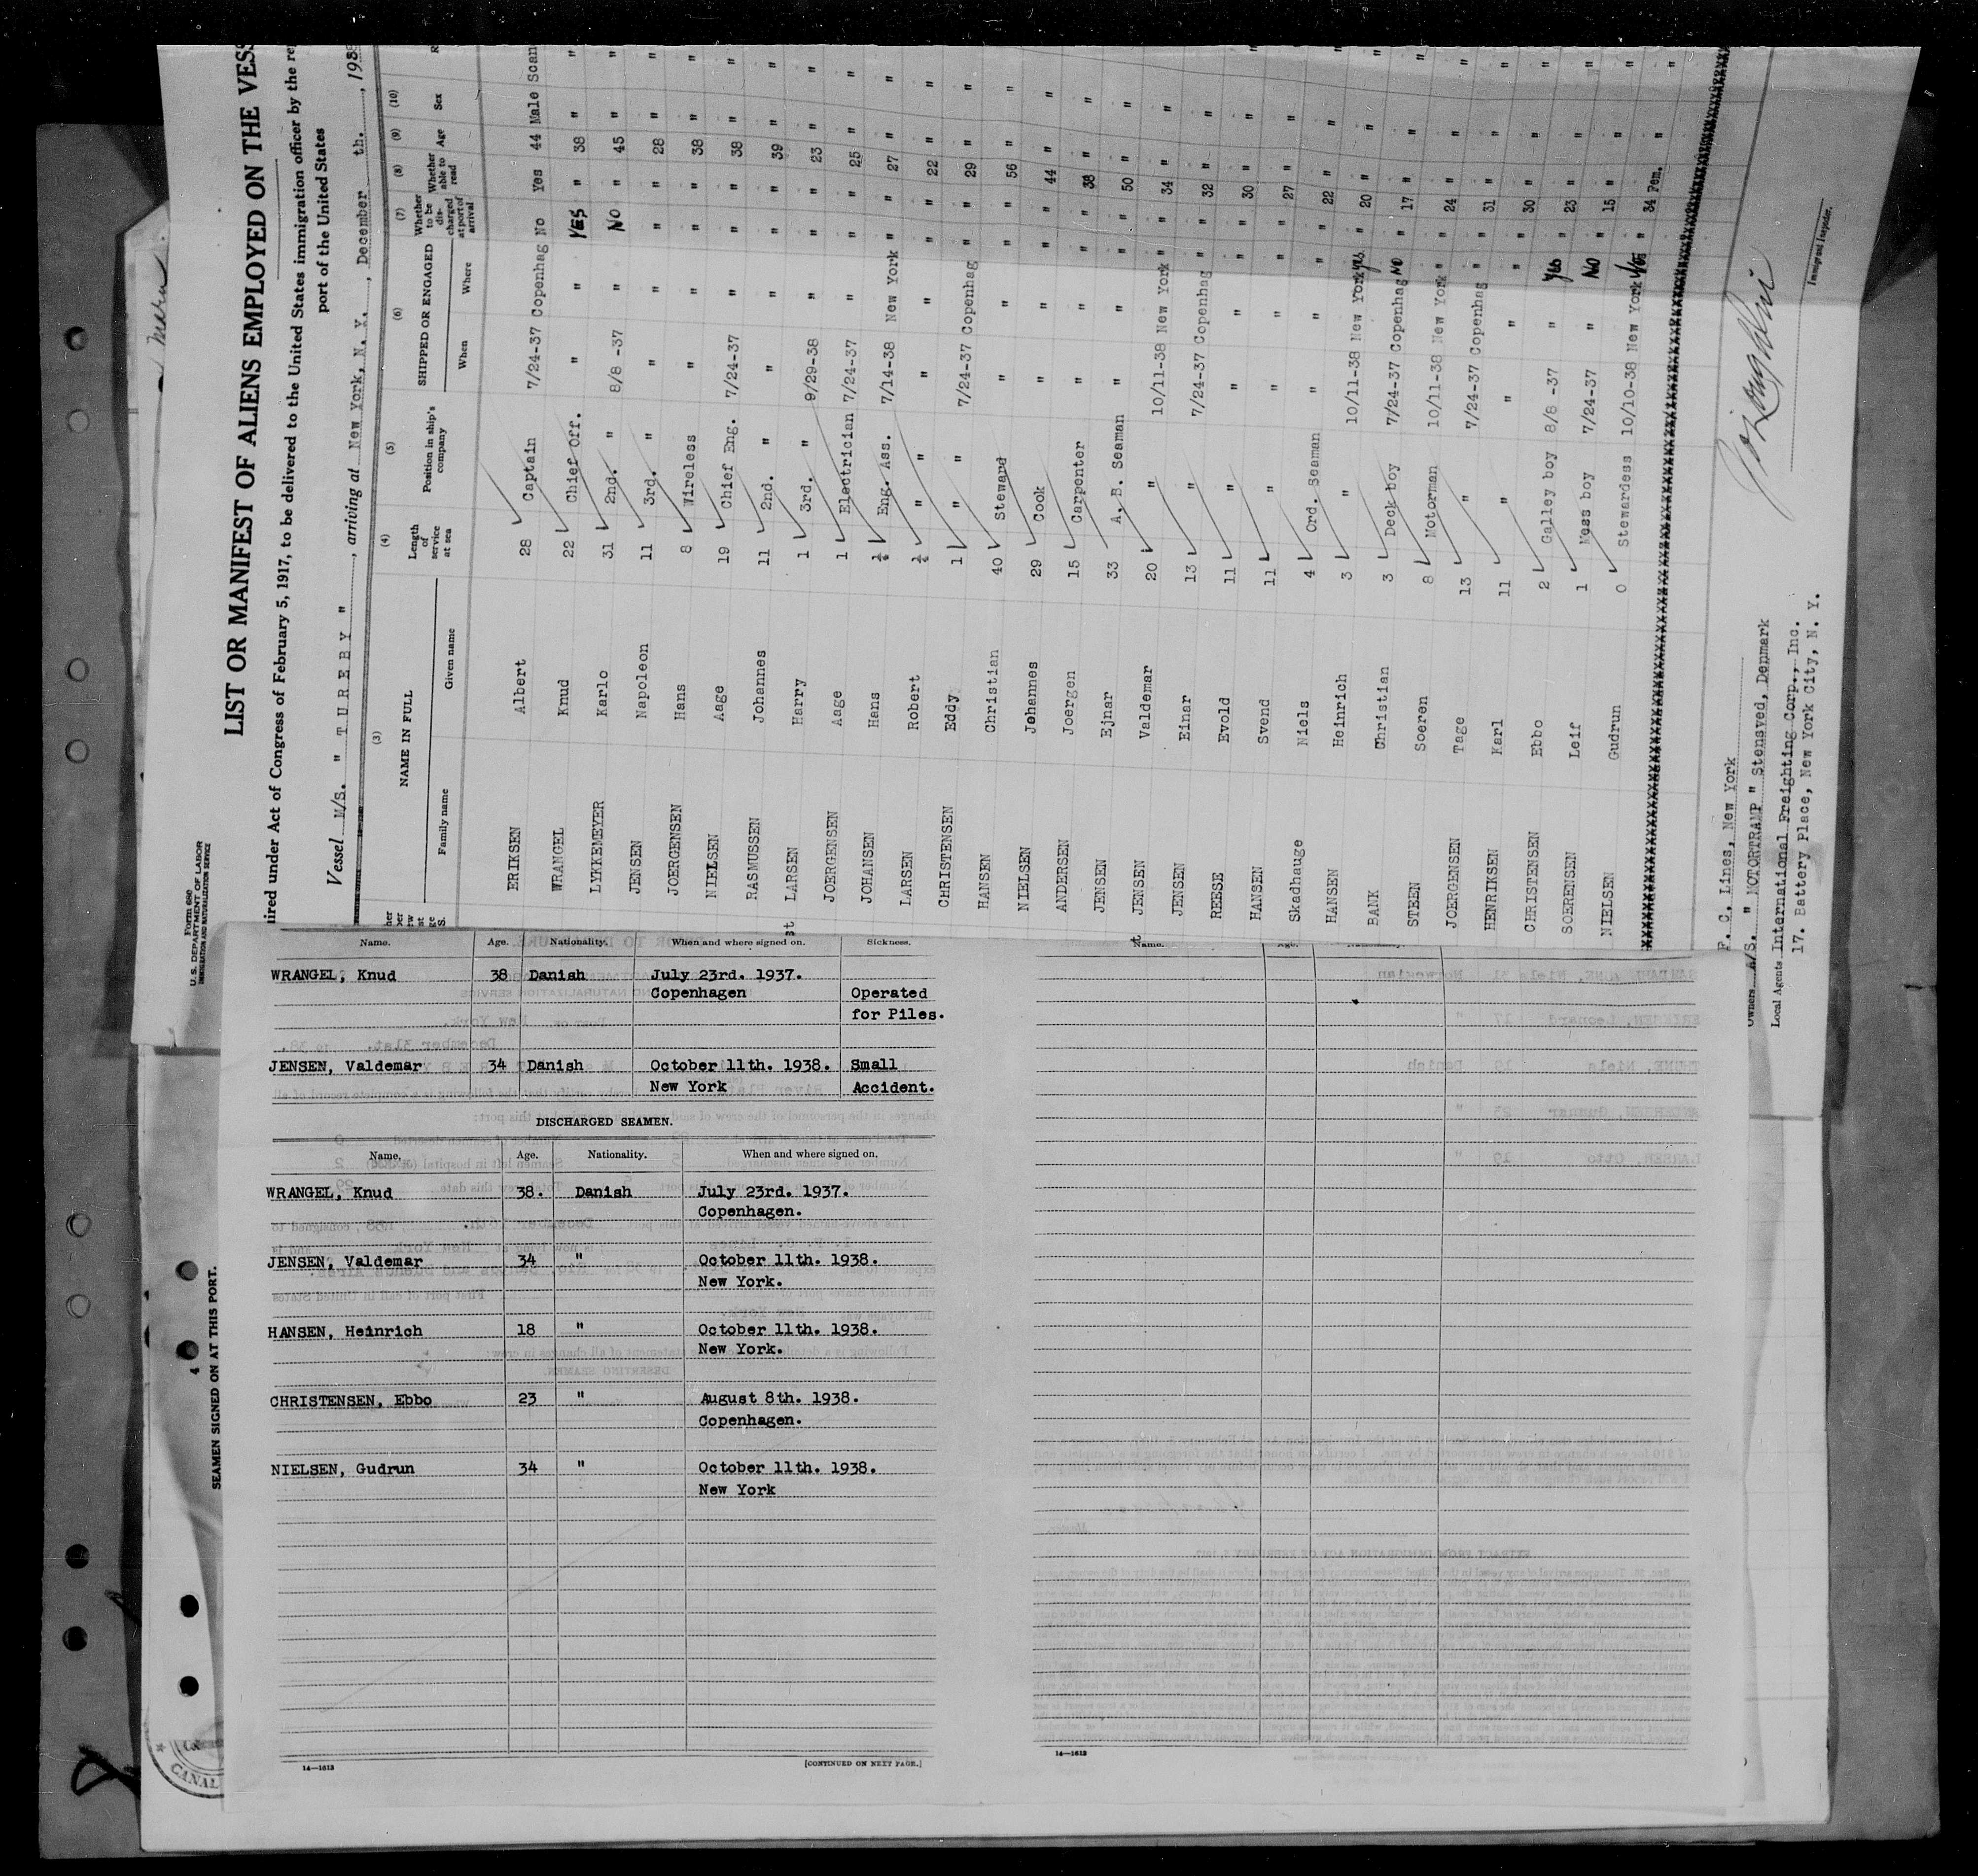 Form 680
U.S. DEPARTMENT OF LABOR
IMMIGRATION AND NATURALIZATION SERVICE
LIST OR MANIFEST OF ALIENS EMPLOYED ON THE VESS
ired under Act of Congress of February 5, 1917, to be delivered to the United States immigration officer by the re
port of the United States
Vessel M/S. " T U R E B Y ", arriving at New York, N. Y., December th., 193
(3) (4) (5) (6) (7) (8) (9) (10)
NAME IN FULL Length of service at sea Position in ship's company SHIPPED OR ENGAGED Whether to be discharged at port of arrival Whether able to read Age Sex R
Family name Given name When Where
ERIKSEN Albert 28 Captain 7/24-37 Copenhag No Yes 44 Male Scan
WRANGEL Knud 22 Chief Off. " " YES " 38 " "
LYKEMEYER Karlo 31 2nd. " 8/8 -37 " NO " 45 " "
JENSEN Napoleon 11 3rd. " " " " " 28 " "
JOERGENSEN Hans 8 Wireless " " " " 38 " "
NIELSEN Aage 19 Chief Eng. 7/24-37 " " " 38 " "
RASMUSSEN Johannes 11 2nd. " " " " " 39 " "
LARSEN Harry 1 3rd. " 9/29-38 " " " 23 " "
JOERGENSEN Aage 1 Electrician 7/24-37 " " " 25 " "
JOHANSEN Hans ½ Eng. Ass. 7/14-38 New York " " 27 " "
LARSEN Robert ½ " " " " " " 22 " "
CHRISTENSEN Eddy 1 " " 7/24-37 Copenhag " " 29 " "
HANSEN Christian 40 Steward " " " " 56 " "
NIELSEN Johannes 29 Cook " " " " 44 " "
ANDERSEN Joergen 15 Carpenter " " " " 38 " "
JENSEN Ejnar 33 A. B. Seaman " " " " 50 " "
JENSEN Valdemar 20 " 10/11-38 New York " " 34 " "
JENSEN Einar 13 " 7/24-37 Copenhag " " 32 " "
REESE Evold 11 " " " " " 30 " "
HANSEN Svend 11 " " " " " 27 " "
Skadhauge Niels 4 Ord. Seaman " " " " 22 " "
HANSEN Heinrich 3 " 10/11-38 New York yes " 20 " "
BANK Christian 3 Deck boy 7/24-37 Copenhag NO " 17 " "
STEEN Soeren 8 Motorman 10/11-38 New York " " 24 " "
JOERGENSEN Tage 13 " 7/24-37 Copenhag " " 31 " "
HENRIKSEN Karl 11 " " " " " 30 " "
CHRISTENSEN Ebbo 2 Galley boy 8/8 -37 " Yes " 23 " "
SOERENSEN Leif 1 Mess boy 7/24-37 " NO " 15 " "
NIELSEN Gudrun 0 Stewardess 10/10-38 New York Yes " 34 Fem. "
F. C. Lines, New York
Owners A/S. " MOTORTRAMP " Stensved, Denmark
Local Agents International Freighting Corp., Inc.
17. Battery Place, New York City, N. Y.
Immigrant Inspector.
Name. Age. Nationality. When and where signed on. Sickness.
WRANGEL, Knud 38 Danish July 23rd. 1937.
Copenhagen Operated
for Piles.
JENSEN, Valdemar 34 Danish October 11th. 1938. Small
New York Accident.
DISCHARGED SEAMEN.
Name. Age. Nationality. When and where signed on.
WRANGEL, Knud 38. Danish July 23rd. 1937.
Copenhagen.
JENSEN, Valdemar 34 " October 11th. 1938.
New York.
HANSEN, Heinrich 18 " October 11th. 1938.
New York.
CHRISTENSEN, Ebbo 23 " August 8th. 1938.
Copenhagen.
NIELSEN, Gudrun 34 " October 11th. 1938.
New York
14—1613 [CONTINUED ON NEXT PAGE.]
14—1613
Name. Age.
4
SEAMEN SIGNED ON AT THIS PORT.
CANAL